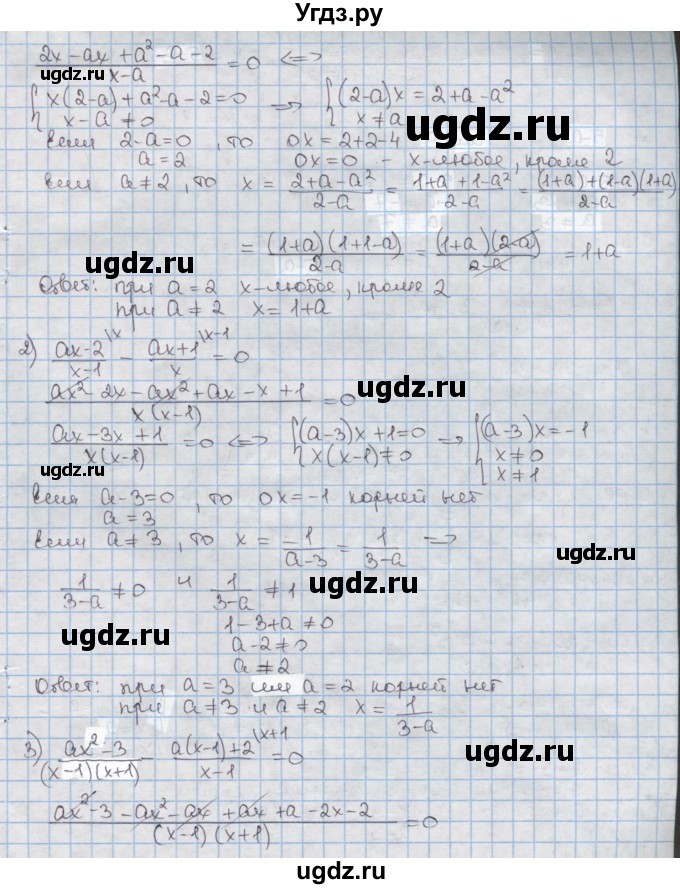 Угдз.ру
(2x - ax + a² - a - 2)/(x-a) = 0 <=>
ugdz.ru
ugdz.ru
{ x(2-a) + a² - a - 2 = 0 → { (2-a)x = 2 + a - a²
{ x - a ≠ 0 { x ≠ a
если 2-a=0, то 0x = 2+2-4
a = 2 0x = 0 - x-любое, кроме 2
если a ≠ 2, то x = (2+a-a²)/(2-a) = (1+a+1-a²)/(2-a) = ((1+a)+(1-a)(1+a))/(2-a)
ugdz.ru
ugdz.ru
= ((1+a)(1+1-a))/(2-a) = ((1+a)(2-a))/(2-a) = 1+a
ugdz.ru
Ответ: при a = 2 x-любое, кроме 2
при a ≠ 2 x = 1+a
2) (ax-2)/(x-1) \x - (ax+1)/x \x-1 = 0
ugdz.ru
(ax² - 2x - ax² + ax - x + 1)/(x(x-1)) = 0
(ax - 3x + 1)/(x(x-1)) = 0 <=> { (a-3)x + 1 = 0 → { (a-3)x = -1
{ x(x-1) ≠ 0 { x ≠ 0
{ x ≠ 1
ugdz.ru
ugdz.ru
если a-3=0, то 0x = -1 корней нет
a = 3
если a ≠ 3, то x = -1/(a-3) = 1/(3-a) =>
ugdz.ru
ugdz.ru
1/(3-a) ≠ 0 и 1/(3-a) ≠ 1
ugdz.ru
1 - 3 + a ≠ 0
a - 2 ≠ 0
a ≠ 2
ugdz.ru
Ответ: при a = 3 или a = 2 корней нет
при a ≠ 3 и a ≠ 2 x = 1/(3-a)
ugdz.ru
ugdz.ru
3) (ax² - 3)/((x-1)(x+1)) - (a(x-1)+2)/(x-1) \x+1 = 0
(ax² - 3 - ax² - ax + ax + a - 2x - 2)/((x-1)(x+1)) = 0
ugdz.ru
ugdz.ru